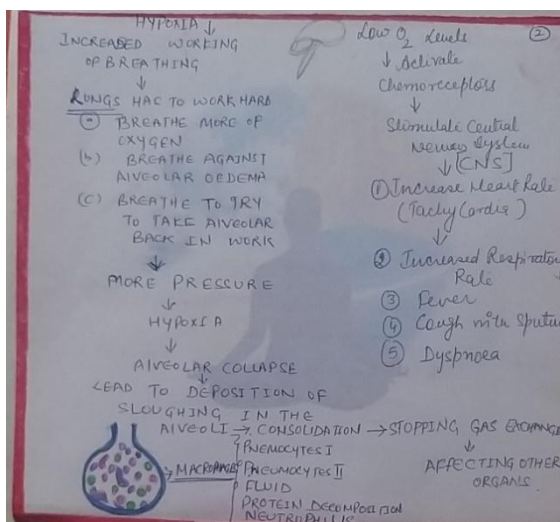 HYPOXIA
INCREASED WORKING
OF BREATHING
LUNGS HAS TO WORK HARD
(a) BREATHE MORE OF
OXYGEN
(b) BREATHE AGAINST
ALVEOLAR OEDEMA
(C) BREATHE TO TRY
TO TAKE ALVEOLAR
BACK IN WORK
MORE PRESSURE
HYPOXIA
ALVEOLAR COLLAPSE
LEAD TO DEPOSITION OF
SLOUGHING IN THE
ALVEOLI → CONSOLIDATION → STOPPING GAS EXCHANGE
MACROPHAGES
PNEMOCYTES I
PNEUMOCYTES II
FLUID
PROTEIN DECOMPOSITION
NEUTROPHILIC
AFFECTING OTHER
ORGANS.
②
Low O2 Levels
Activate
Chemoreceptors
Stimulate Central
Nervous System
[CNS]
① Increase Heart Rate
(Tachycardia)
② Increased Respiratory
Rate
③ Fever
④ Cough with Sputum
⑤ Dyspnoea